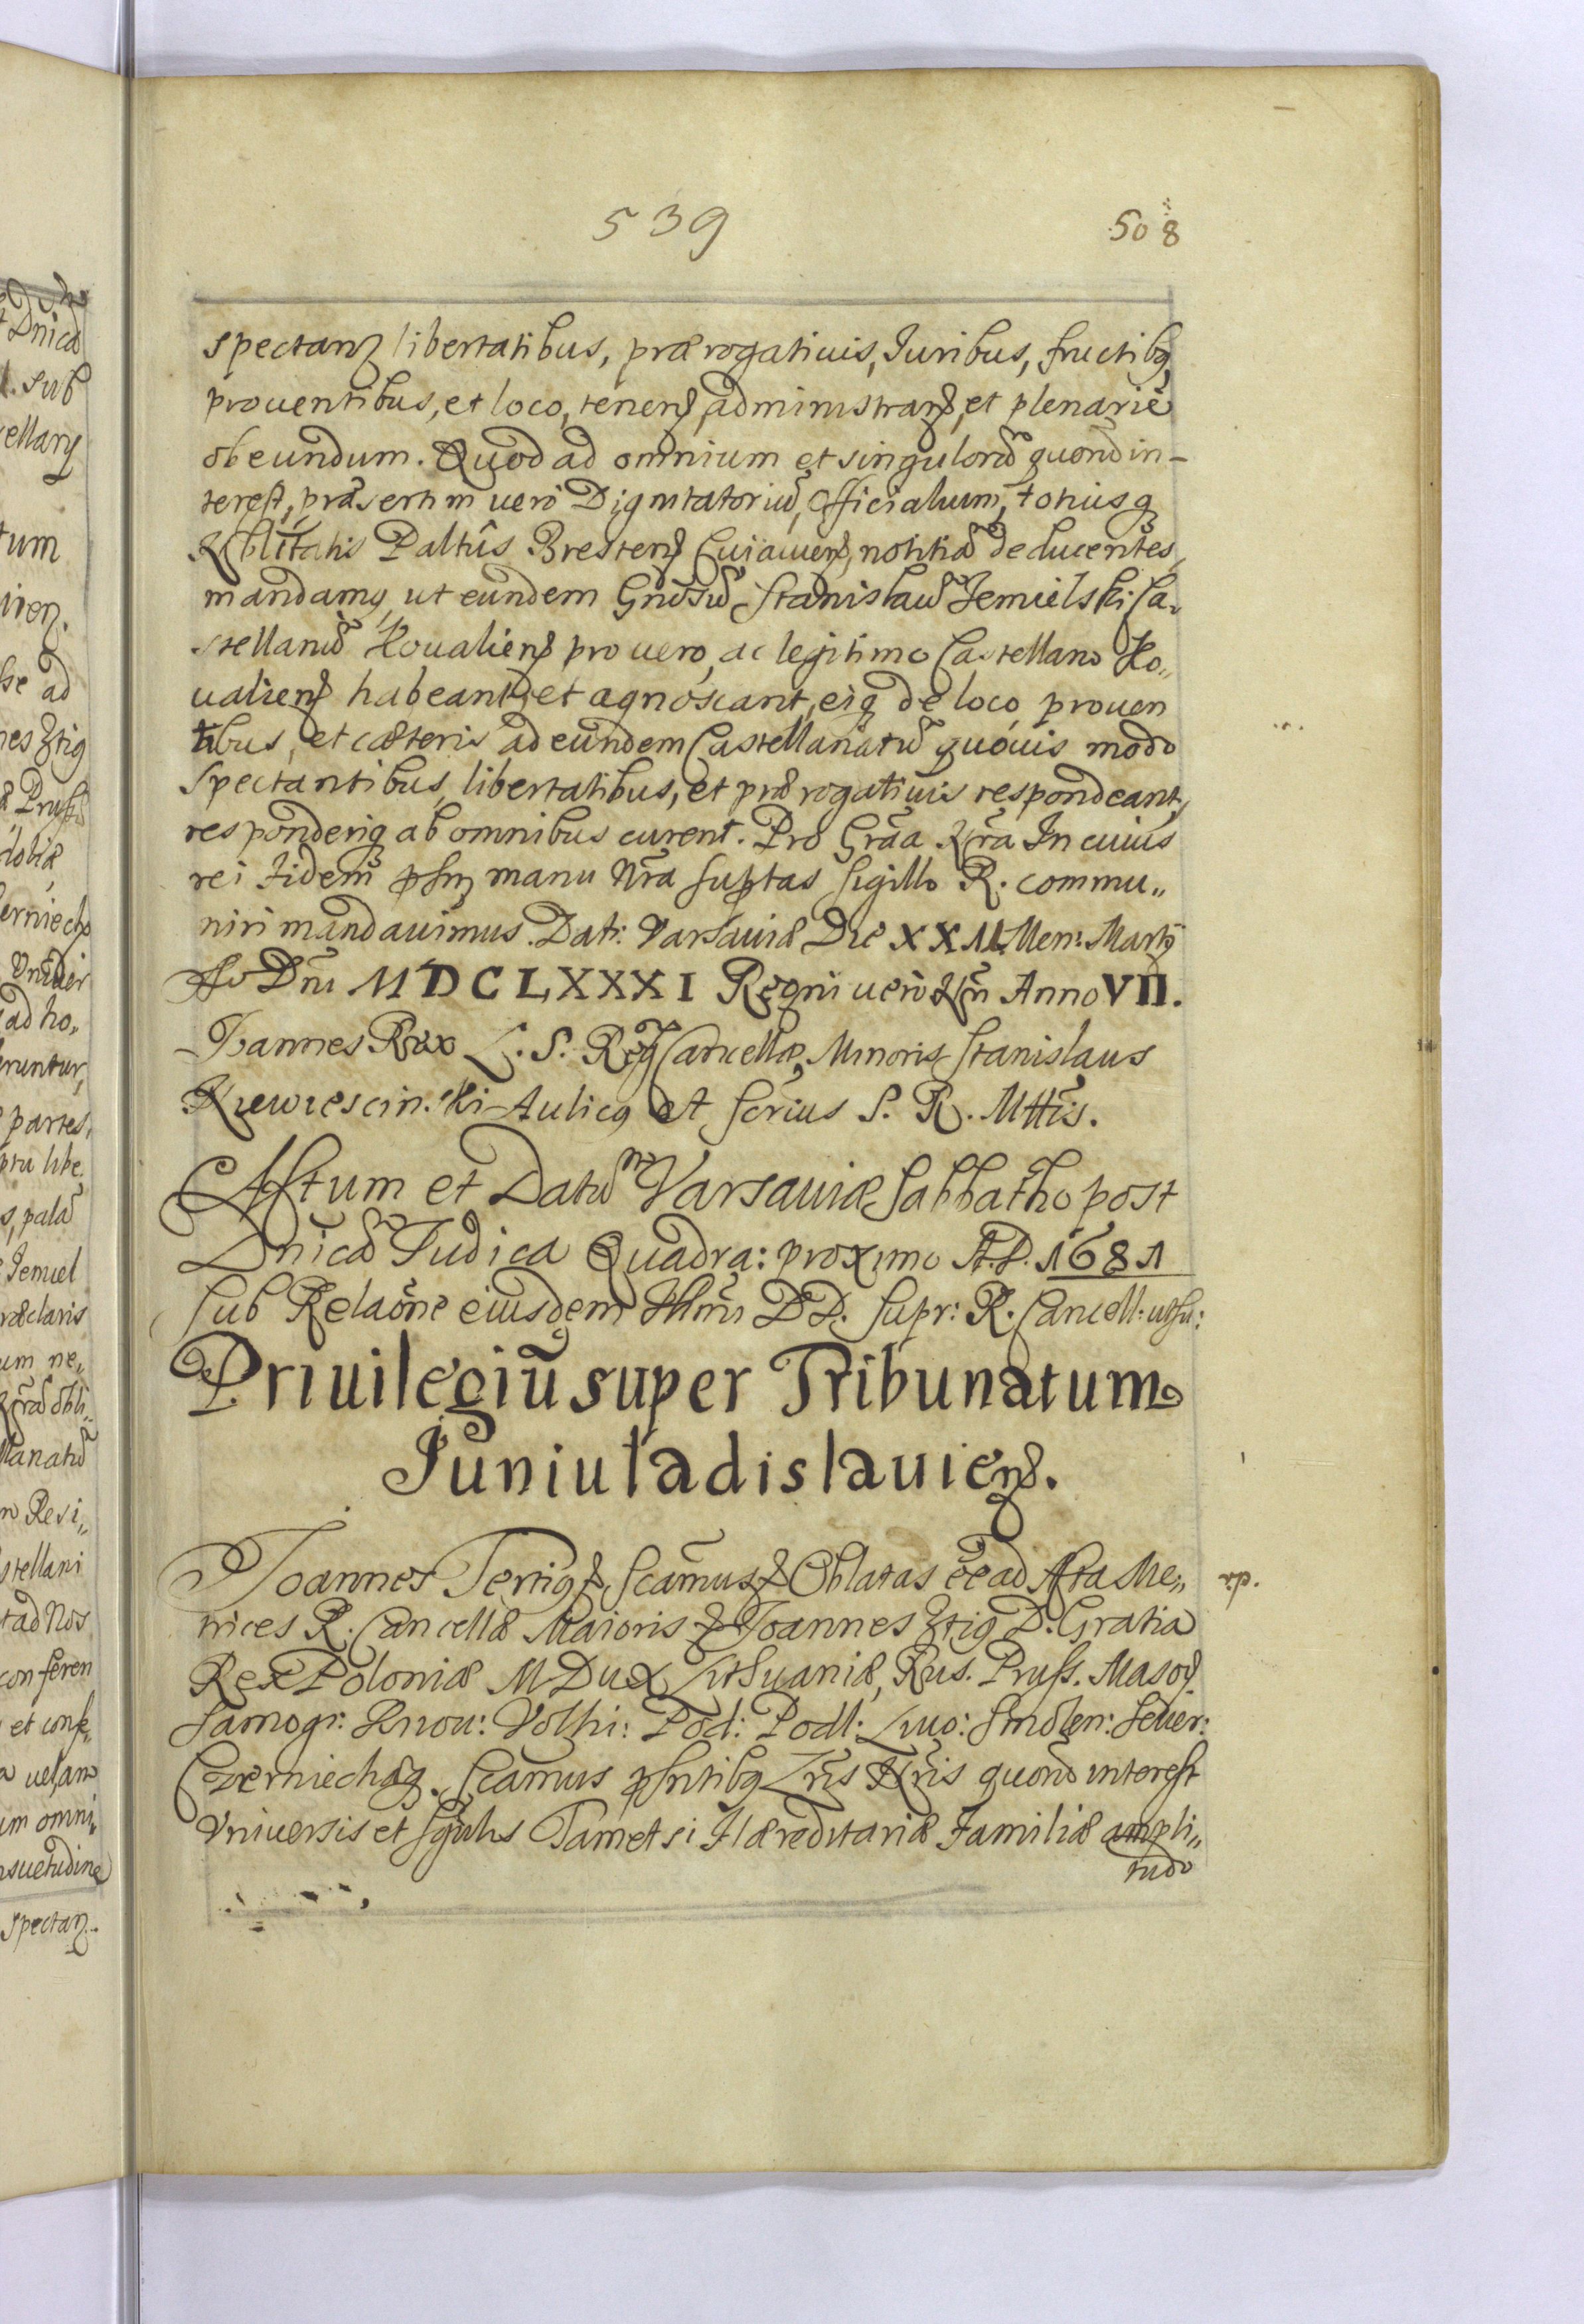 539
508
spectanz libertatibus, prærogativis, Iuribus, fructibq,
prouentibus, et loco, tenenẞ, administranẞ, et plenarie
obeundum. Quod ad omnium et singulorũ quorũ in-
terest, præsertim uero Dignitatoriũ, Officialium, totiusq
Nobilitatis Palttũs Brestenẞ Cuiauienẞ, notitiã deducentes
mandamq, ut eundem Gnõsũ Stanislaũ Iemielski Ca,
stellanũ Koualienẞ pro uero, ac legitimo Castellano Ko,,
ualienẞ habeant, et agnoscant, eiq de loco, prouen
tibus, et cæteris ad eundem Castellanatũ quouis modo
spectantibus, libertatibus, et prærogatiuis respondeant,
responderiq ab omnibus curent. Pro Grãa Nrã In cuius
rei fidem pñtes manu Nrã suptas sigillo R. commu,,
niri mandauimus. Dat: Varsauiæ Die XXII Men: Martÿ
Aº Dni MDCLXXXI Regni uero Nri Anno VII.
Ioannes Rex L. S. Reg Cancellæ, Minoris Stanislaus
Krewiescin.ski Aulicq et Scrius S. R. Mttis.
Actum et Datũ Varsauiæ Sabbatho post
Dnicã Iudica Quadra: proximo A. D. 1681
Sub Relaõne eiusdem Illmi DD. Supr: R. Cancell: utsu:
Priuilegiũ super Tribunatum
Iuniuladislauienẞ.
Ioannes Tertiq & Scamus & Oblatas ẽe ad Acta Me,,
r.p.
trices R. Cancellæ Maioris & Ioannes Ztiq D: Gratia
Rex Poloniæ M Dux Lithuaniæ, Rus. Pruss. Masoẞ
Samogi: Kyou: Volhi: Pod: Podl: Liuo: Smolen: Seuer:
Czerniechoq. Scamus pñntibq Lris Nris quorũ interest
Vniuersis et sgulis Tametsi Hæreditariæ Familiæ ampli,,
tudo